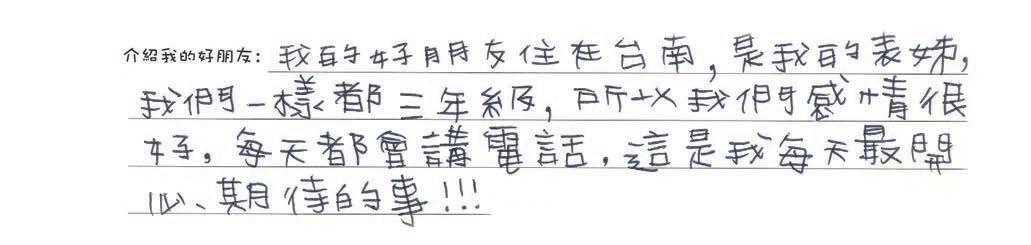 介紹我的好朋友：我的好朋友住在台南，是我的表姊，
我們一樣都三年級，所以我們感情很
好，每天都會講電話，這是我每天最開
心、期待的事!!!